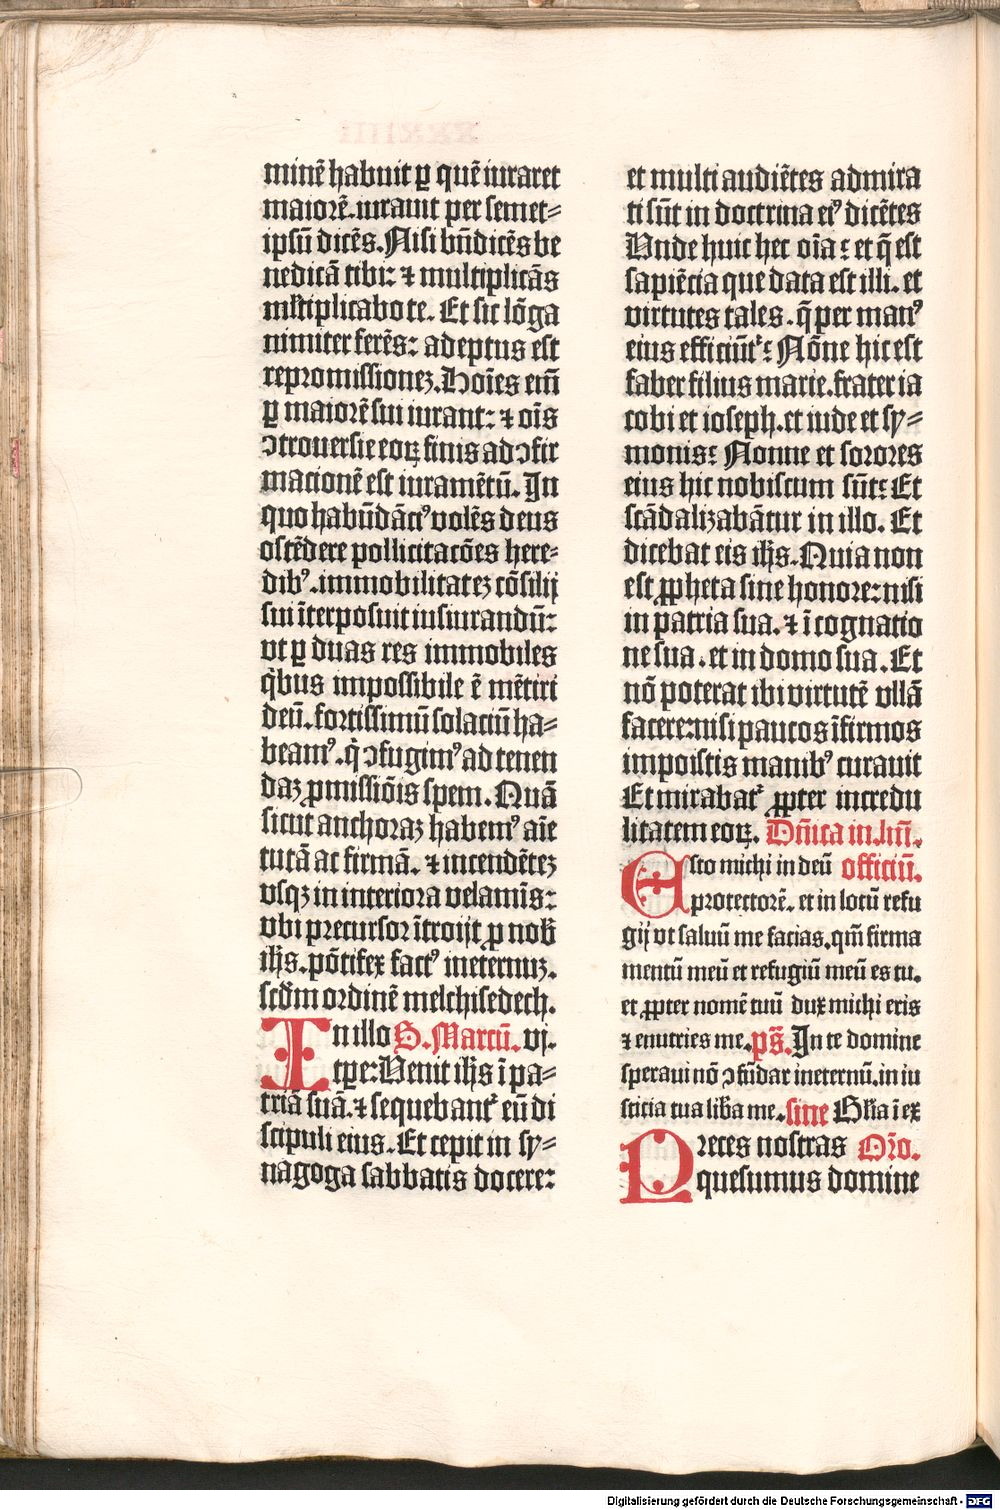 minē habuit ꝑ quē iuraret
maiorē. iurauit per semet⸗
ipsū dicēs. Nisi bn̄dicēs be
nedicā tibi: ⁊ multiplicās
mltiplicabo te. Et sic lōga
nimiter ferēs: adeptus est
repromissionez. Hoīes em̄
ꝑ maiorē sui iurant: ⁊ oīs
ꝯtrouersie eoꝝ finis ad ꝯfir
macionē est iuramētū. In
quo habūdāciꝰ volēs deus
ostēdere pollicitacōes here⸗
dibꝰ. immobilitatez cōsilij
sui īterposuit iusiurandū:
vt ꝑ duas res immobiles
q̄bus impossibile ē mētiri
deū. fortissimū solaciū ha⸗
beamꝰ. q̄ ꝯfugimꝰ ad tenen
daz ꝓmissiōis spem. Quā
sicut anchoraz habemꝰ aīe
tutā ac firmā. ⁊ incendētez
vsqꝫ in interiora velamīs:
vbi precursor ītroijt ꝓ nob̄
ih̄s. pōtifex factꝰ ineternuz.
scd̄m ordinē melchisedech.
In illo S. Marcū. vj.
tꝑe: Venit ih̄s ī pa⸗
triā suā. ⁊ sequebant᷑ eū di
scipuli eius. Et cepit in sy⸗
nagoga sabbatis docere:
et multi audiētes admira
ti sūt in doctrina eiꝰ dicētes
Vnde huic hec oīa: et q̄ est
sapiētia que data est illi. et
virtutes tales. q̄ per manꝰ
eius efficiūt᷑: Nōne hic est
faber filius marie. frater ia
cobi et ioseph. et iude et sy⸗
monis: Nonne et sorores
eius hic nobiscum sūt: Et
scādalizabātur in illo. Et
dicebat eis ih̄s. Quia non
est ꝓpheta sine honore: nisi
in patria sua. ⁊ ī cognatio
ne sua. et in domo sua. Et
nō poterat ibi virtutē vllā
facere: nisi paucos īfirmos
impoistis manibꝰ curauit
Et mirabat᷑ ꝓpter incredu
litatem eoꝝ. Dn̄ica in .lm̄.
Esto michi in deū officiū.
protectorē. et in locū refu
gij vt saluū me facias. qm̄ firma
mentū meū et refugiū meū es tu.
et ꝓpter nomē tuū dux michi eris
⁊ enutries me. ps̄. In te domine
speraui nō ꝯfūdar ineternū. in iu
sticia tua lib̄a me. sine Gl̄ia ī ex
Preces nostras Or̄o.
quesumus domine
Digitalisierung gefördert durch die Deutsche Forschungsgemeinschaft - DFG